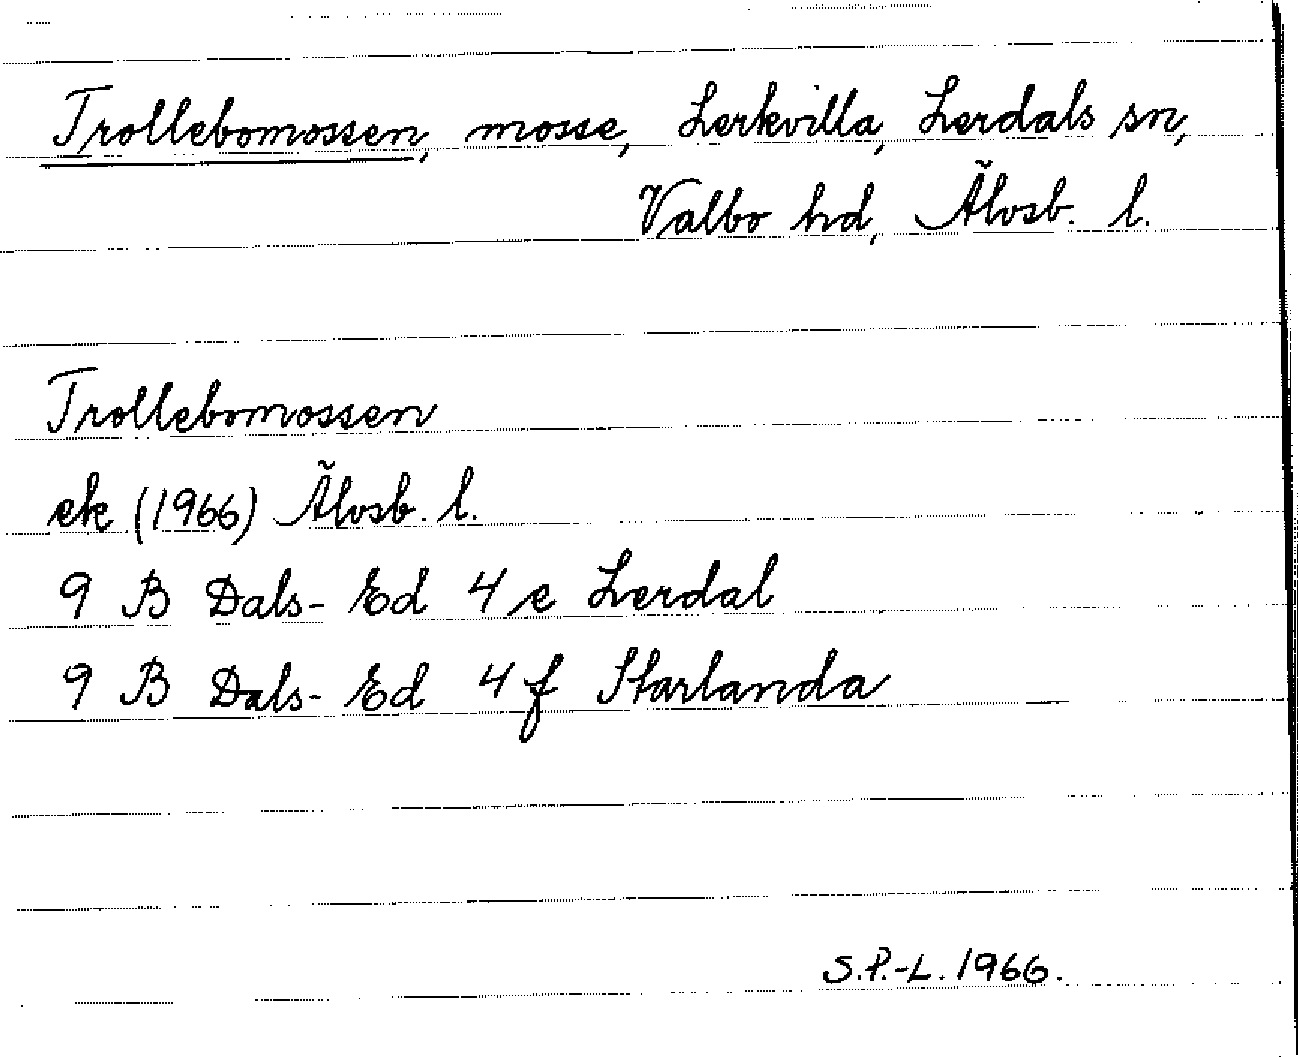 Trollebomossen, mosse, Lerkvilla, Lerdals sn,
Valbo hd, Älvsb. l.
Trollebomossen
ek (1966) Älvsb. l.
9 B Dals-Ed 4 e Lerdal
9 B Dals-Ed 4 f Starlanda
S.P.-L. 1966.